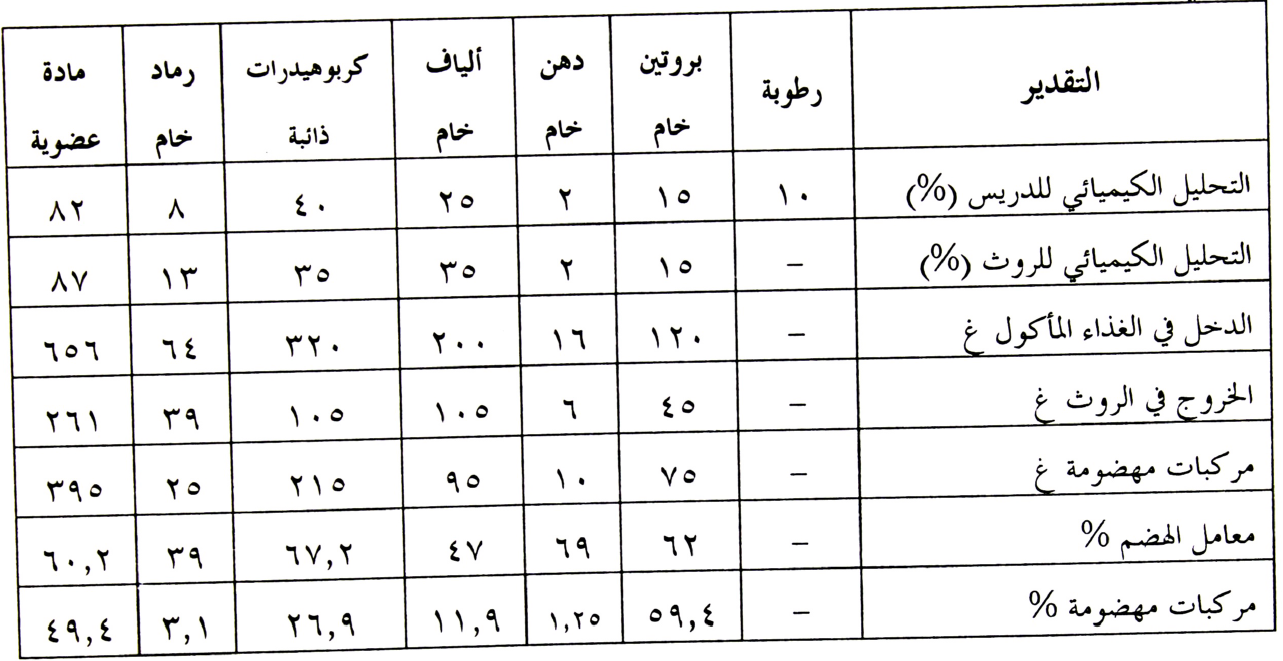 التقدير رطوبة بروتين خام دهن خام ألياف خام كربوهيدرات ذائبة رماد خام مادة عضوية
التحليل الكيميائي للدريس (%) ١٠ ١٥ ٢ ٢٥ ٤٠ ٨ ٨٢
التحليل الكيميائي للروث (%) – ١٥ ٢ ٣٥ ٣٥ ١٣ ٨٧
الدخل في الغذاء المأكول غ – ١٢٠ ١٦ ٢٠٠ ٣٢٠ ٦٤ ٦٥٦
الخروج في الروث غ – ٤٥ ٦ ١٠٥ ١٠٥ ٣٩ ٢٦١
مركبات مهضومة غ – ٧٥ ١٠ ٩٥ ٢١٥ ٢٥ ٣٩٥
معامل الهضم % – ٦٢ ٦٩ ٤٧ ٦٧,٢ ٣٩ ٦٠,٢
مركبات مهضومة % – ٥٩,٤ ١,٢٥ ١١,٩ ٢٦,٩ ٣,١ ٤٩,٤